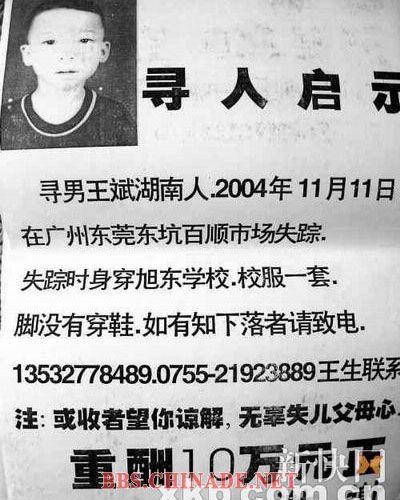 寻人启示
寻男王斌湖南人.2004年11月11日
在广州东莞东坑百顺市场失踪.
失踪时身穿旭东学校.校服一套.
脚没有穿鞋.如有知下落者请致电.
13532778489.0755-21923889王生联系
注:或收者望你谅解,无辜失儿父母心.
重酬10万元正
新快网
BBS.CHINADE.NET
xkb.com.cn